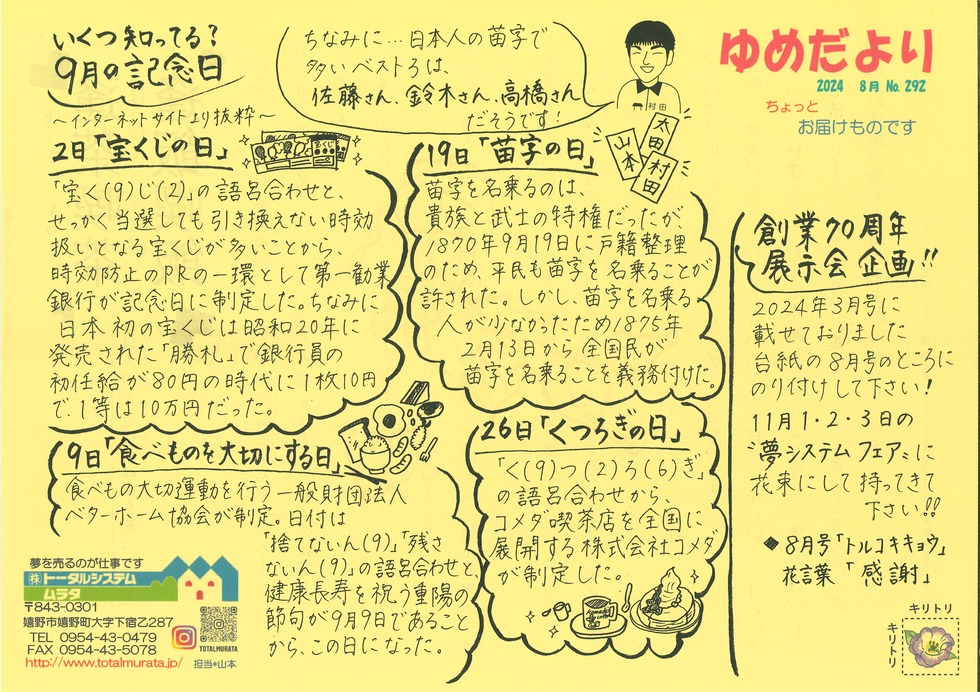 いくつ知ってる?
9月の記念日
~インターネットサイトより抜粋~
ちなみに…日本人の苗字で
多いベスト3は、
佐藤さん、鈴木さん、高橋さん
だそうです!
村田
太田
山本
村田
ゆめだより
2024 8月 No. 292
ちょっと
お届けものです
2日「宝くじの日」
「宝く(9)じ(2)」の語呂合わせと、
せっかく当選しても引き換えない時効
扱いとなる宝くじが多いことから、
時効防止のPRの一環として第一勧業
銀行が記念日に制定した。ちなみに
日本初の宝くじは昭和20年に
発売された「勝札」で銀行員の
初任給が80円の時代に1枚10円
で、1等は10万円だった。
19日「苗字の日」
苗字を名乗るのは、
貴族と武士の特権だったが、
1870年9月19日に戸籍整理
のため、平民も苗字を名乗ることが
許された。しかし、苗字を名乗る
人が少なかったため1875年
2月13日から全国民が
苗字を名乗ることを義務付けた。
9日「食べものを大切にする日」
食べもの大切運動を行う一般財団法人
ベターホーム協会が制定。日付は
「捨てないん(9)」「残さ
ないん(9)」の語呂合わせと、
健康長寿を祝う重陽の
節句が9月9日であること
から、この日になった。
26日「くつろぎの日」
「く(9)つ(2)ろ(6)ぎ」
の語呂合わせから、
コメダ喫茶店を全国に
展開する株式会社コメダ
が制定した。
創業70周年
展示会企画!!
2024年3月号に
載せておりました
台紙の8月号のところに
のり付けして下さい!
11月1・2・3日の
"夢システムフェア"に
花束にして持ってきて
下さい!!
◆8月号「トルコキキョウ」
花言葉「感謝」
キリトリ
キリトリ
夢を売るのが仕事です
㈱トータルシステム
ムラタ
〒843-0301
嬉野市嬉野町大字下宿乙287
TEL 0954-43-0479
FAX 0954-43-5078
http://www.totalmurata.jp/
TOTALMURATA
担当*山本